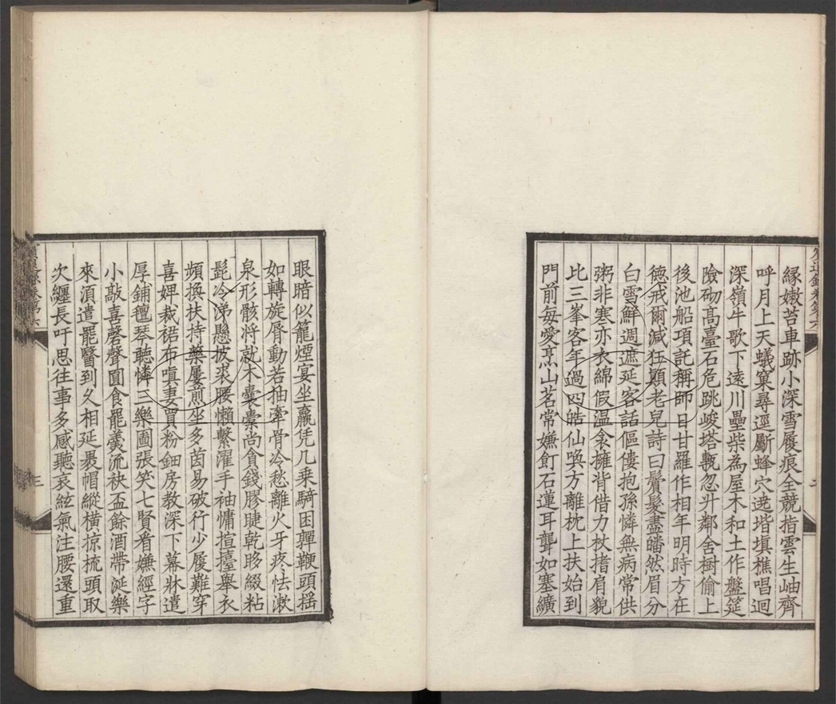 緣嫩苔車跡小深雪履痕全競指雲生岫齊
呼月上天蟻窠尋逕斸蜂穴逺堦填樵唱迴
深嶺牛歌下遠川壘柴為屋木和土作盤筵
險砌髙臺石危跳峻塔甎忽升鄰舎樹偷上
後池船項託稱師日甘羅作相年明時方在
德戒爾減狂顛老兒詩曰鬢髮盡皤然眉分
白雪鮮週遮延客話傴僂抱孫憐無病常供
粥非寒亦衣綿假温衾擁背借力杖搘肩貌
比三峯客年過四皓仙喚方離枕上扶始到
門前毎愛烹山茗常嫌飣石蓮耳聾如塞纊
眼暗似籠煙宴坐羸凭几乗騎困嚲鞭頭揺
如轉旋脣動若抽牽骨冷愁離火牙疼怯漱
泉形骸將就木囊槖尚貪錢膠睫乾眵綴粘
髭冷涕懸披裘腰懶繫濯手袖慵揎擡舉衣
頻換扶持藥屢煎坐多茵易破行少履難穿
喜婢裁裙布嗔妻買粉鈿房教深下幕牀遣
厚鋪氊琴聽憐三樂圖張笑七賢看嫌經字
小敲喜磬聲圓食罷羮流袂盃餘酒帶涎樂
來湏遣罷醫到久相延裹帽縱横掠梳頭取
次纒長吁思往事多感聽哀絃氣注腰還重